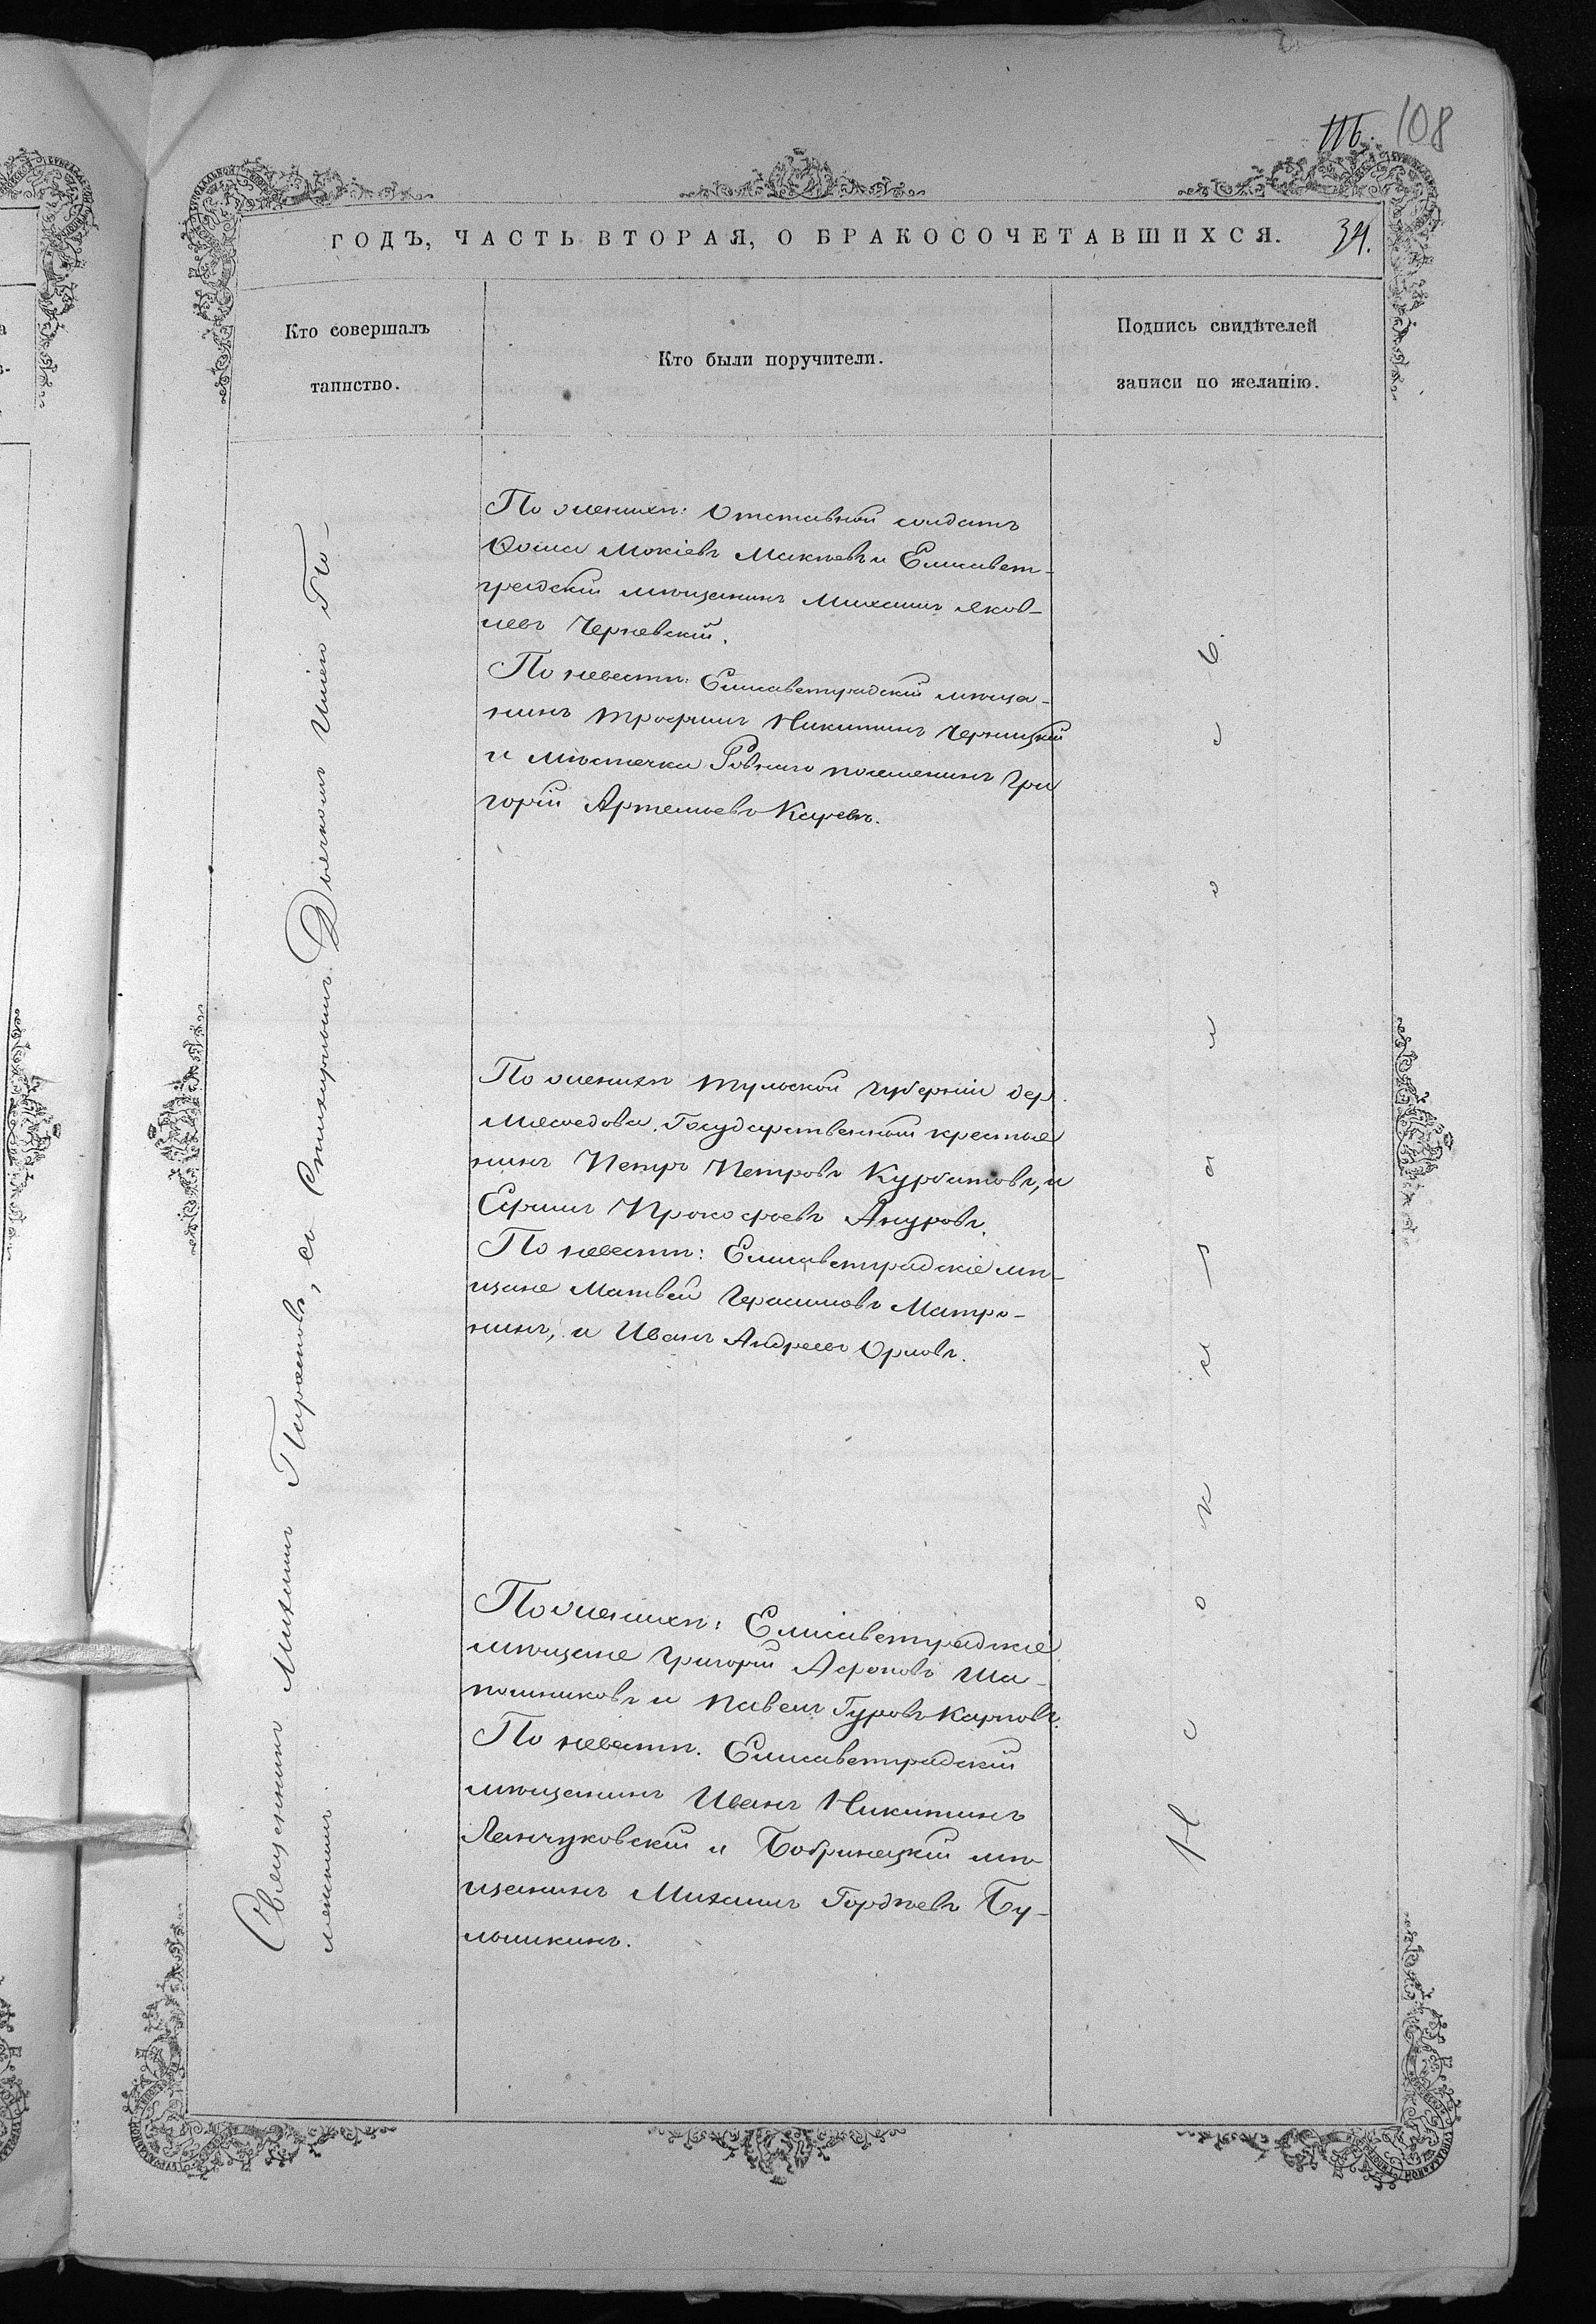 116. 108
ГОДЪ, ЧАСТЬ ВТОРАЯ, О БРАКОСОЧЕТАВШИХСЯ. 34.
Кто совершалъ
таинство.
Кто были поручители.
Подпись свидѣтелей
записи по желанію.
Священникъ Михаилъ Парѳеновъ, съ Стихарнымъ Дьячкомъ Иліею По-
лежкинъ.
По женихѣ: Отставной солдатъ
Ѳома Мокіевъ Макѣевъ и Елисавет-
градскій мѣщанинъ Михаилъ Яков-
левъ Черневскій.
По невестѣ: Елисаветградскій мѣща-
нинъ Трофимъ Никитинъ Черницкій
и мѣстечка Ровнаго поселянинъ Гри
горій Артемьевъ Каревъ.
По женихѣ Тульской губерніи дер.
Мясоедова, Государственный крестья
нинъ Петръ Петровъ Курбатовъ, и
Ефимъ Прокофьевъ Ануровъ.
По невестѣ: Елисаветградскіе мѣ-
щане Матвей Герасимовъ Матро-
нинъ, и Иванъ Андреевъ Орловъ.
По женихѣ: Елисаветградскіе
мѣщане Григорій Афоновъ Ша-
пошниковъ и Павелъ Гуровъ Карповъ.
По невестѣ. Елисаветградскій
мѣщанинъ Иванъ Никитинъ
Лянчуковскій и Бобринецкій мѣ
щанинъ Михаилъ Гордѣевъ Бу-
лышкинъ.